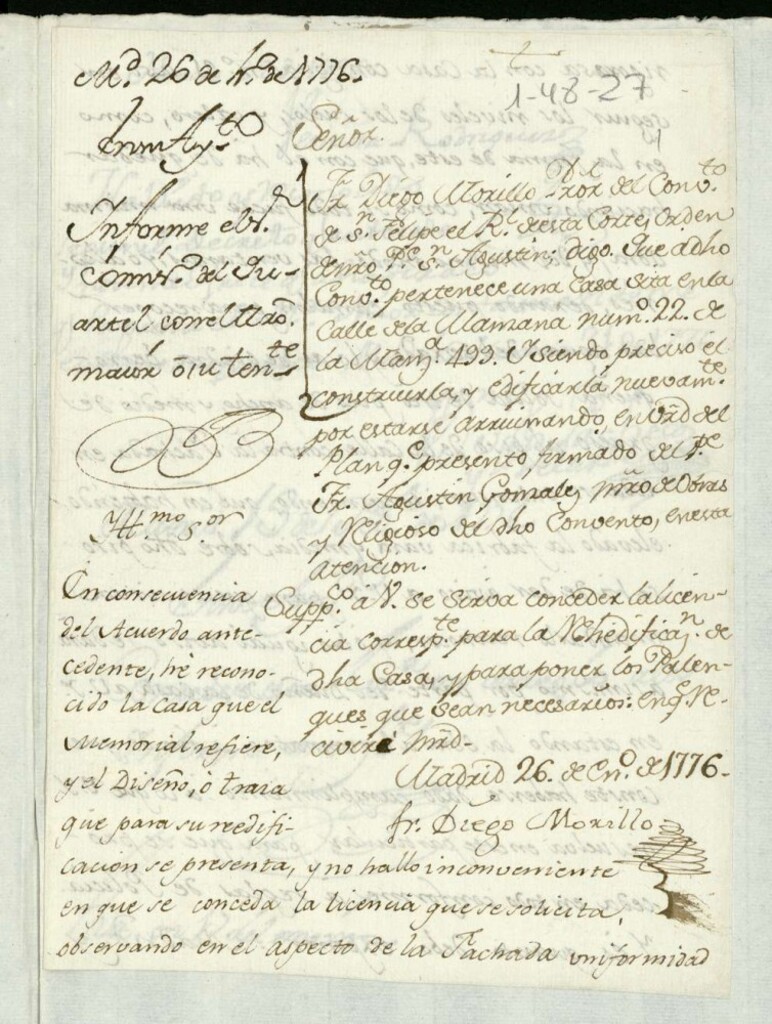 Md. 26 de En.º de 1776.
1-48-27
En su Ay.to
Informe el S.r
Comis.º del Qu-
artel con el Mro.
maior ó su ten.te
Señor
Fr. Diego Morillo Pror. del Conv.to
de S.n Felipe el R.l de esta Corte, Orden
de nro. P.e S.n Agustin; digo. Que a dho
Conv.to pertenece una Casa sita en la
Calle de la Mamana num.º 22. de
la Manz.a 493. Y siendo preciso el
construirla, y edificarla nuevam.te
por estarse arruinando, en vrd del
Plan q.e presento, firmado del P.e
Fr. Agustin Gonzalez, Mro de Obras
y Religioso del dho Convento, en esta
atencion.
Supp.co á V. se sirva conceder la licen-
cia corresp.te para la Rhedificaz.n de
dha Casa, y para poner los Palen-
ques que sean necesarios: en q.e Re-
civirá mrd-
Madrid 26. de En.º de 1776.
fr. Diego Morillo
Yll.mo S.or
En consecuencia
del Acuerdo ante-
cedente, hé recono-
cido la Casa que el
Memorial refiere,
y el Diseño, ó traza
que para su reedifi-
cacion se presenta, y no hallo inconveniente
en que se conceda la licencia que se solicita,
observando en el aspecto de la Fachada uniformidad